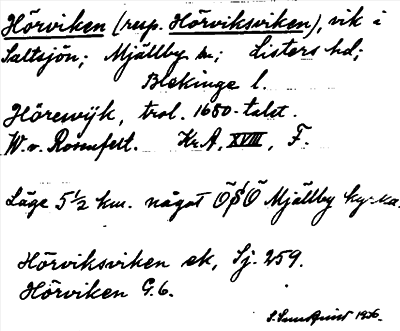 Hörviken (resp. Hörviksviken), vik i
Saltsjön; Mjällby sn; Listers hd;
Blekinge l.
Hörewijk, trol. 1680-talet.
W. v. Rosenfelt. Kr.A, XVIII, F.
Läge 5½ km. något ÖSÖ Mjällby kyrka.
Hörviksviken ek, Sj. 259.
Hörviken G.6.
1936.